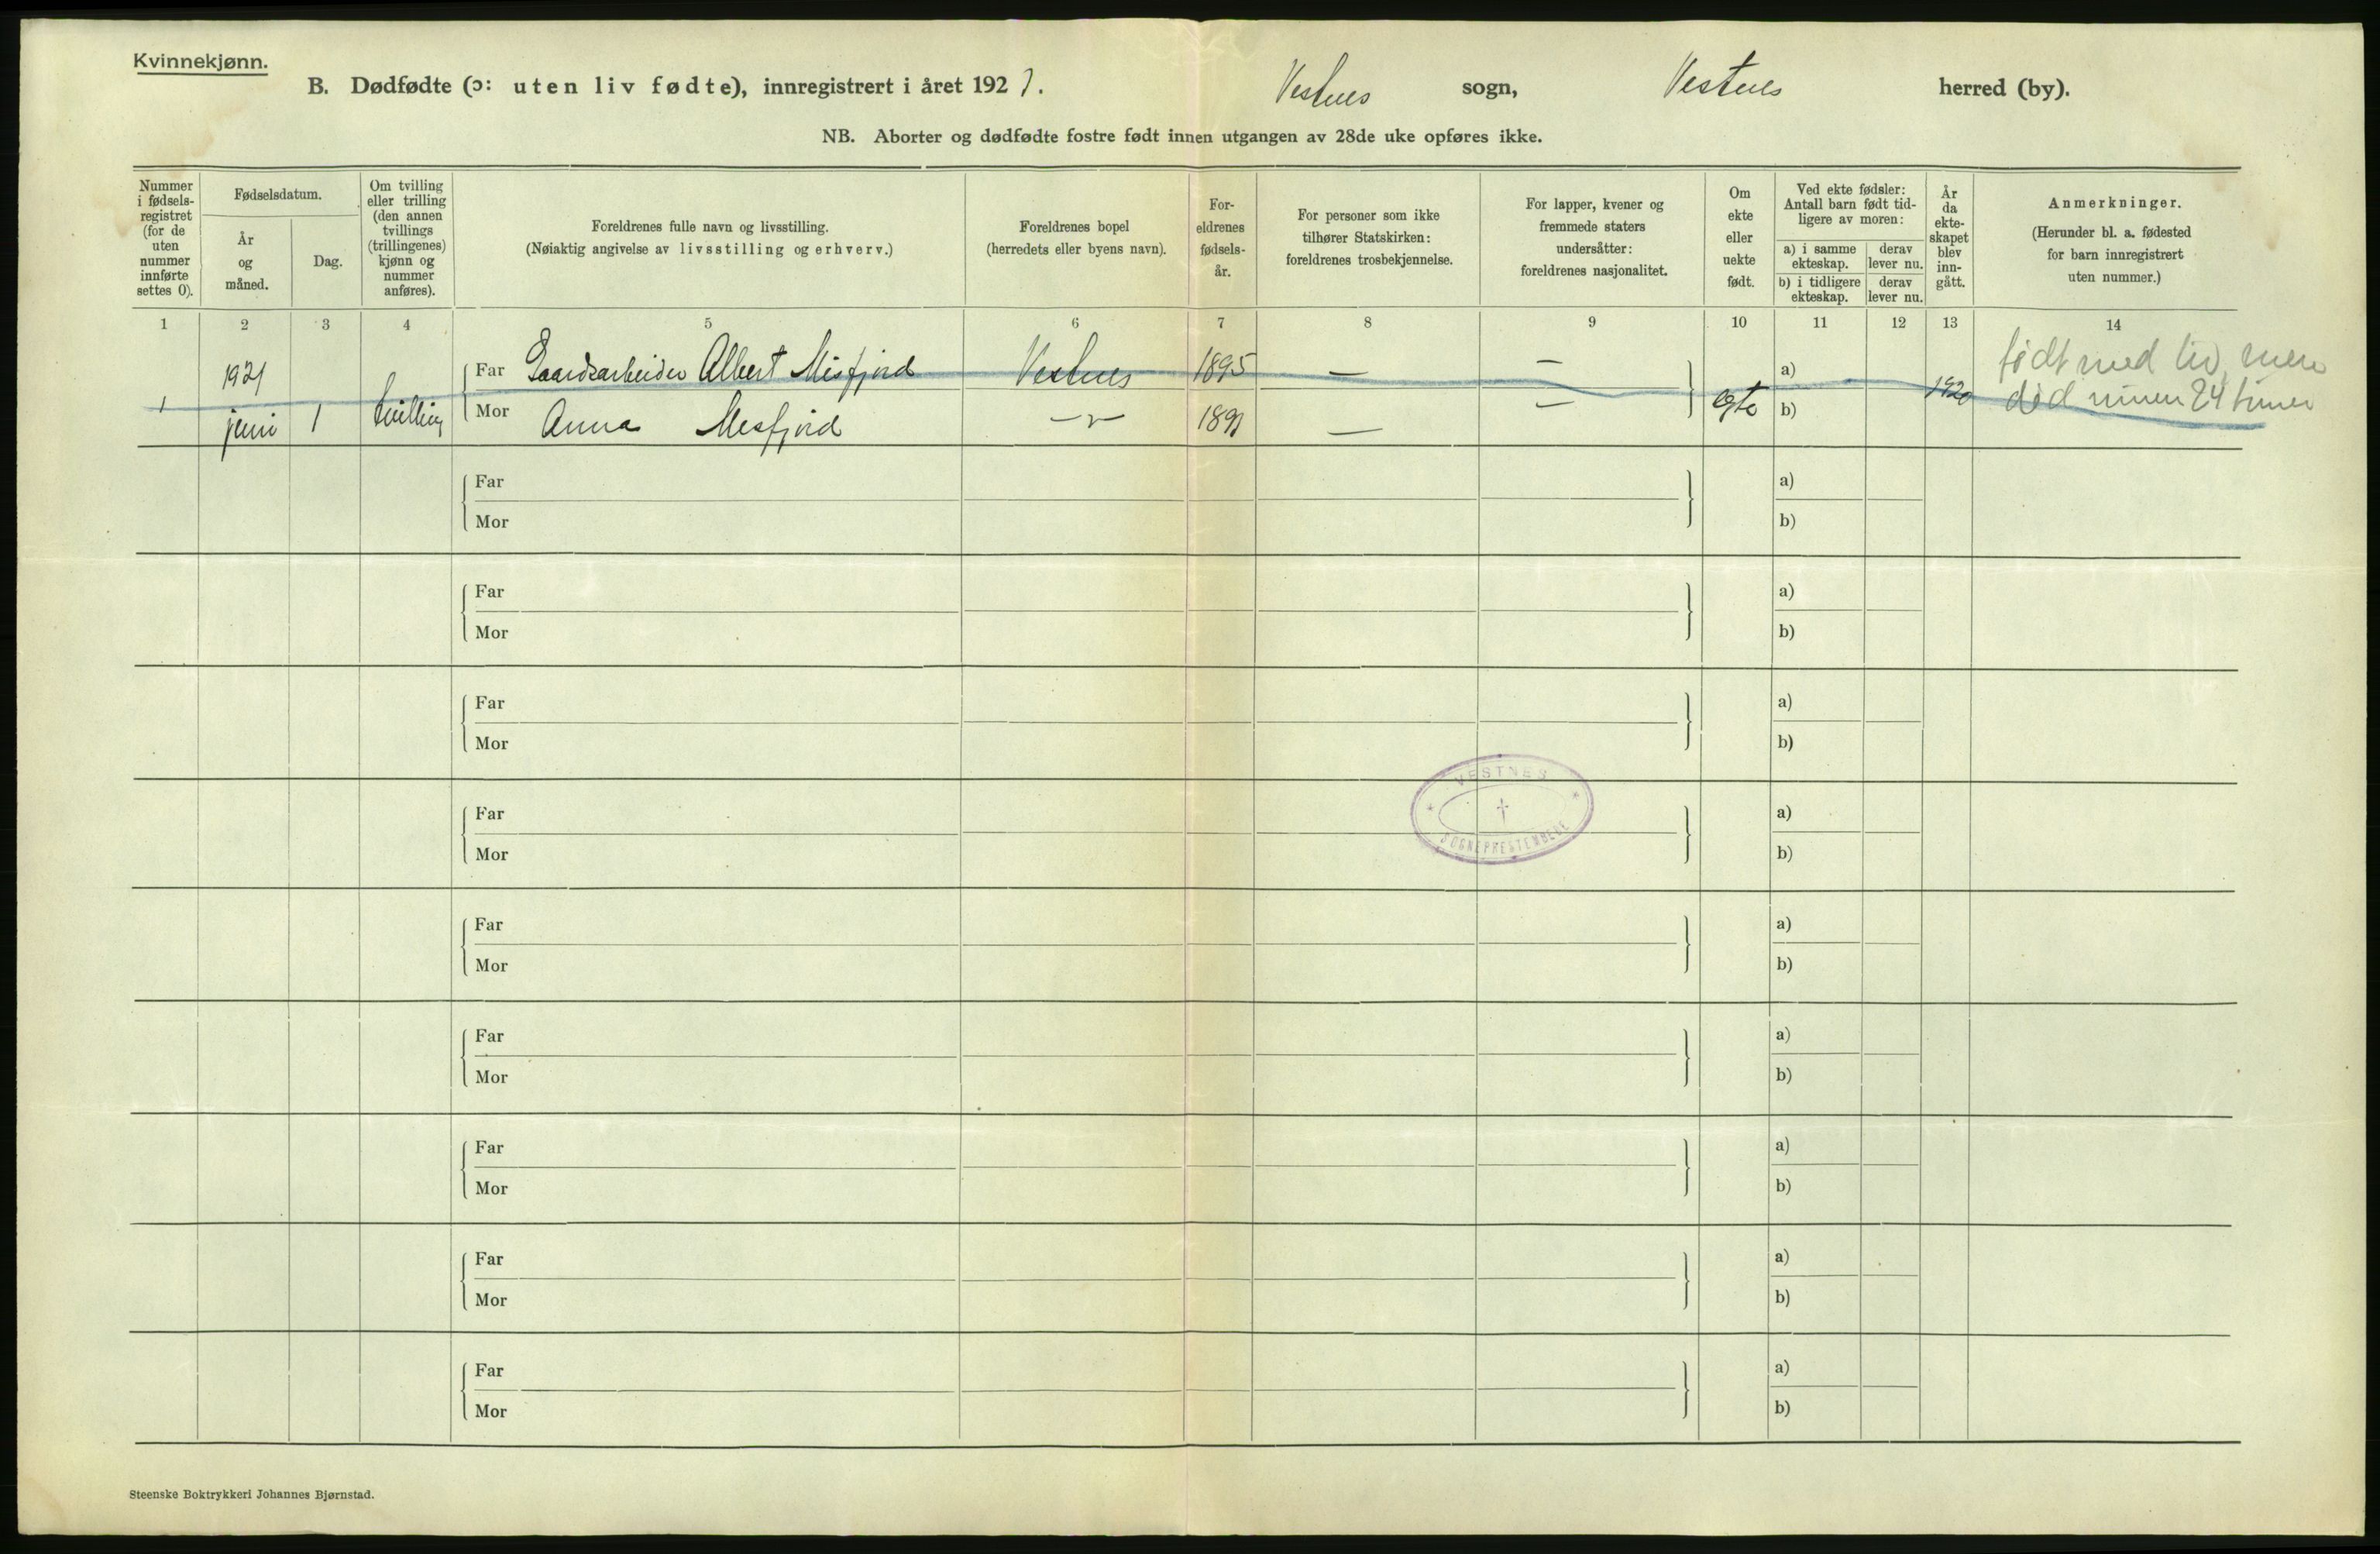 Kvinnekjønn.
B. Dødfødte (ɔ: uten liv fødte), innregistrert i året 1921. Vestnes sogn, Vestnes herred (by).
NB. Aborter og dødfødte fostre født innen utgangen av 28de uke opføres ikke.
Nummer
i fødsels-
registret
(for de
uten
nummer
innførte
settes 0).
Fødselsdatum.
År
og
måned.
Dag.
Om tvilling
eller trilling
(den annen
tvillings
(trillingenes)
kjønn og
nummer
anføres).
Foreldrenes fulle navn og livsstilling.
(Nøiaktig angivelse av livsstilling og erhverv.)
Foreldrenes bopel
(herredets eller byens navn).
For-
eldrenes
fødsels-
år.
For personer som ikke
tilhører Statskirken:
foreldrenes trosbekjennelse.
For lapper, kvener og
fremmede staters
undersåtter:
foreldrenes nasjonalitet.
Om
ekte
eller
uekte
født.
Ved ekte fødsler:
Antall barn født tid-
ligere av moren:
a) i samme
ekteskap.
derav
lever nu.
b) i tidligere
ekteskap.
derav
lever nu.
År
da
ekte-
skapet
blev
inn-
gått.
Anmerkninger.
(Herunder bl. a. fødested
for barn innregistrert
uten nummer.)
1 2 3 4 5 6 7 8 9 10 11 12 13 14
1
1921
juni
1
tvilling
Far Gaardsarbeider Albert Misfjord Vestnes 1895 — —
Mor Anna Misfjord —〃— 1891 — —
egte
a)
b)
1920
født med liv, men
død innen 24 timer
Far a)
Mor b)
Far a)
Mor b)
Far a)
Mor b)
Far a)
Mor b)
VESTNES
SOGNEPRESTEMBEDE
Far a)
Mor b)
Far a)
Mor b)
Far a)
Mor b)
Far a)
Mor b)
Far a)
Mor b)
Steenske Boktrykkeri Johannes Bjørnstad.